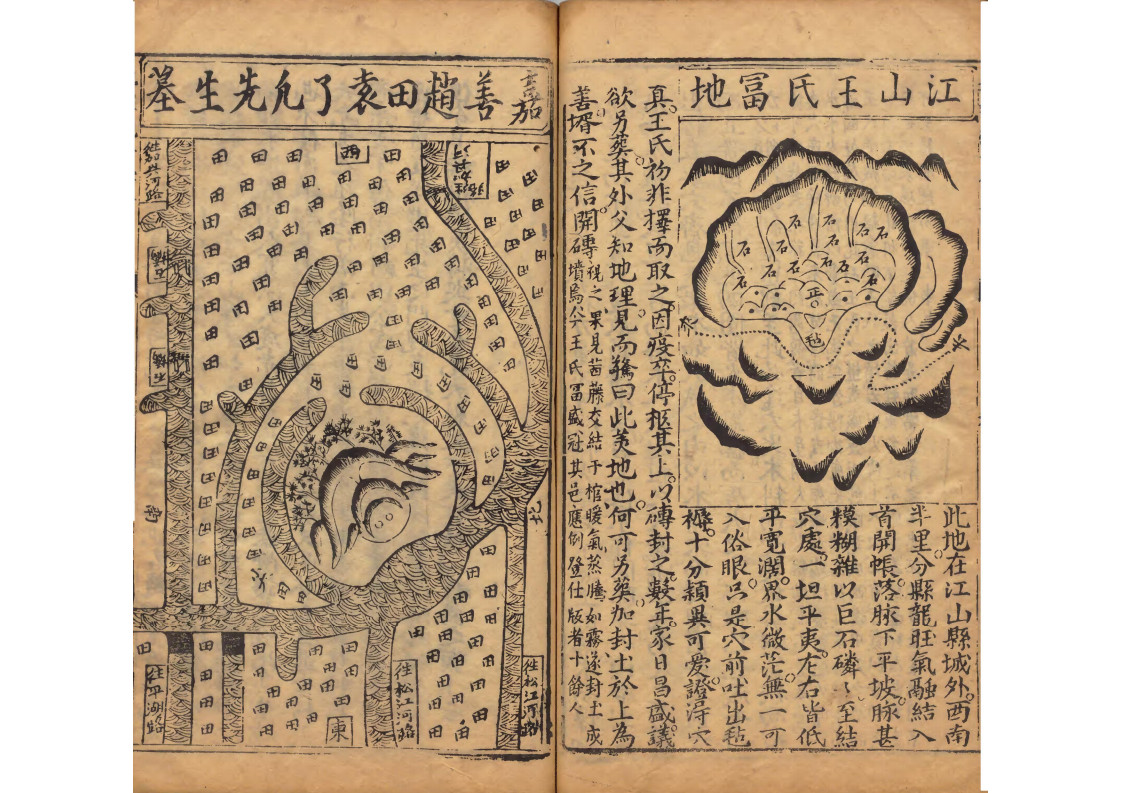 江山王氏冨地
石
石
石
石
石
石
石
石
石
石
石
正
毡
此地在江山縣城外西南
半里分縣龍旺氣融結入
首開帳落脉下平坡脉甚
糢糊雜以巨石磷〻至結
穴處一坦平夷左右皆低
平寬濶界水微茫無一可
入俗眼只是穴前吐出毡
褥十分頴異可愛證淂穴
真王氏初非擇而取之因疫卒停柩其上以磚封之數年家日昌盛議
欲另葬其外父知地理見而驚曰此美地也何可另葬加封土於上為
善壻不之信開磚視之果見茜藤交結于棺暖氣蒸騰如霧遂封土成
墳焉今王氏冨盛冠其邑應例登仕版者十餘人
嘉善趙田袁了凡先生墓
西
南
北
東
田
往平湖路
往松江河路
往松江河路